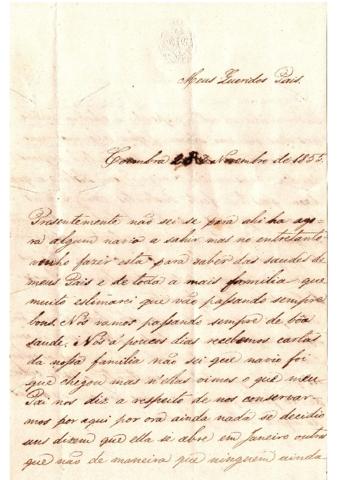 Meus Queridos Pais.
Coimbra 28 Novembro de 1855.
Presentemente não sei se para ahi ha ago-
ra algum navio a sahir mas no entretanto
venho fazer esta para saber das saudes de
meus Pais e de toda a mais familia que
muito estimarei que vão passando sempre
bons. Nós vamos passando sempre de bôa
saude. Nós á poucos dias recebemos cartas
da nossa familia não sei que navio foi
que chegou mas n'ellas vimos o que meu
Pai nos diz a respeito de nos conservar-
mos por aqui por ora ainda nada se decidio
uns dizem que ella se abre em Janeiro outros
que não de maneira que ninguem ainda